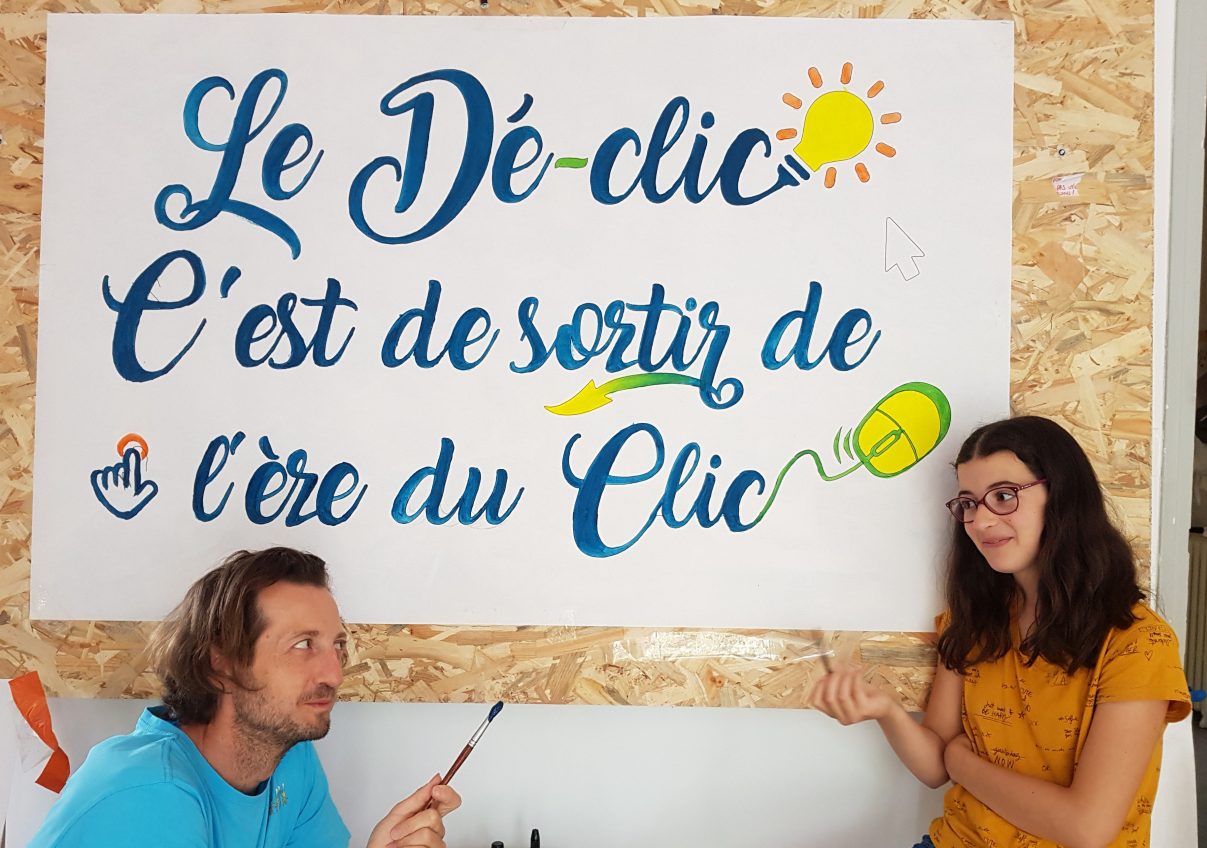 Le Dé-clic
C'est de sortir de
l'ère du Clic